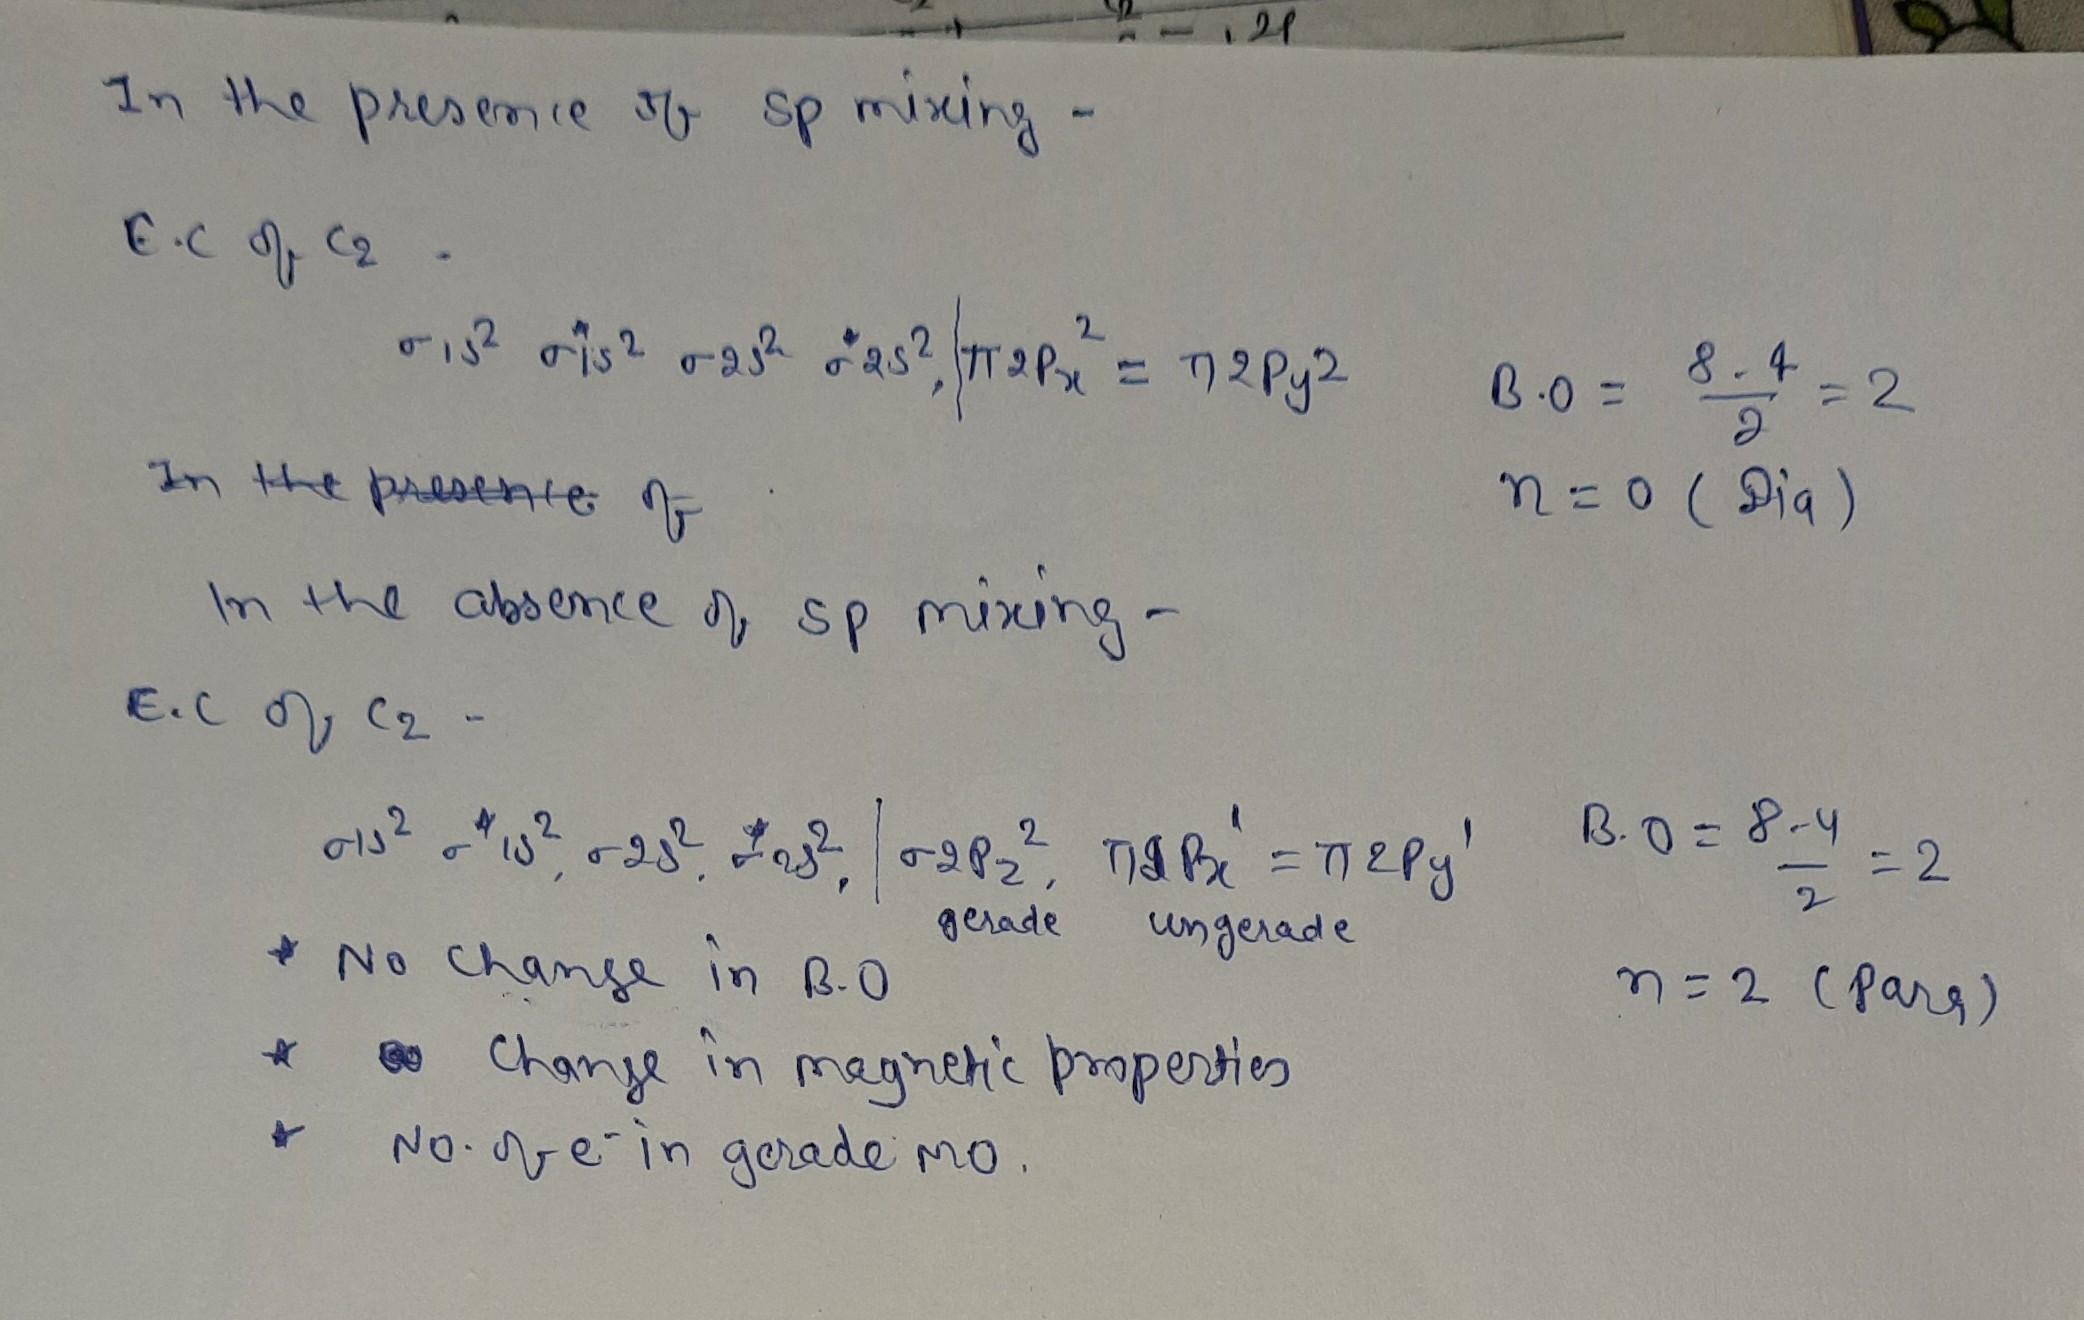 , 2P
In the presence of sp mixing -
E.C of C2 -
σ1s² σ*1s² σ2s² σ*2s², | π2Px² = π2Py2
B.O = 8-4/2 = 2
n = 0 (Dia)
In the presence of
In the absence of sp mixing -
E.C of C2 -
σ1s² σ*1s², σ2s², σ*2s², | σ2Pz², π2Px¹ = π2Py¹
B.O = 8-4/2 = 2
gerade ungerade
n = 2 (Para)
* No change in B.O
* change in magnetic properties
* No. of e⁻ in gerade MO.